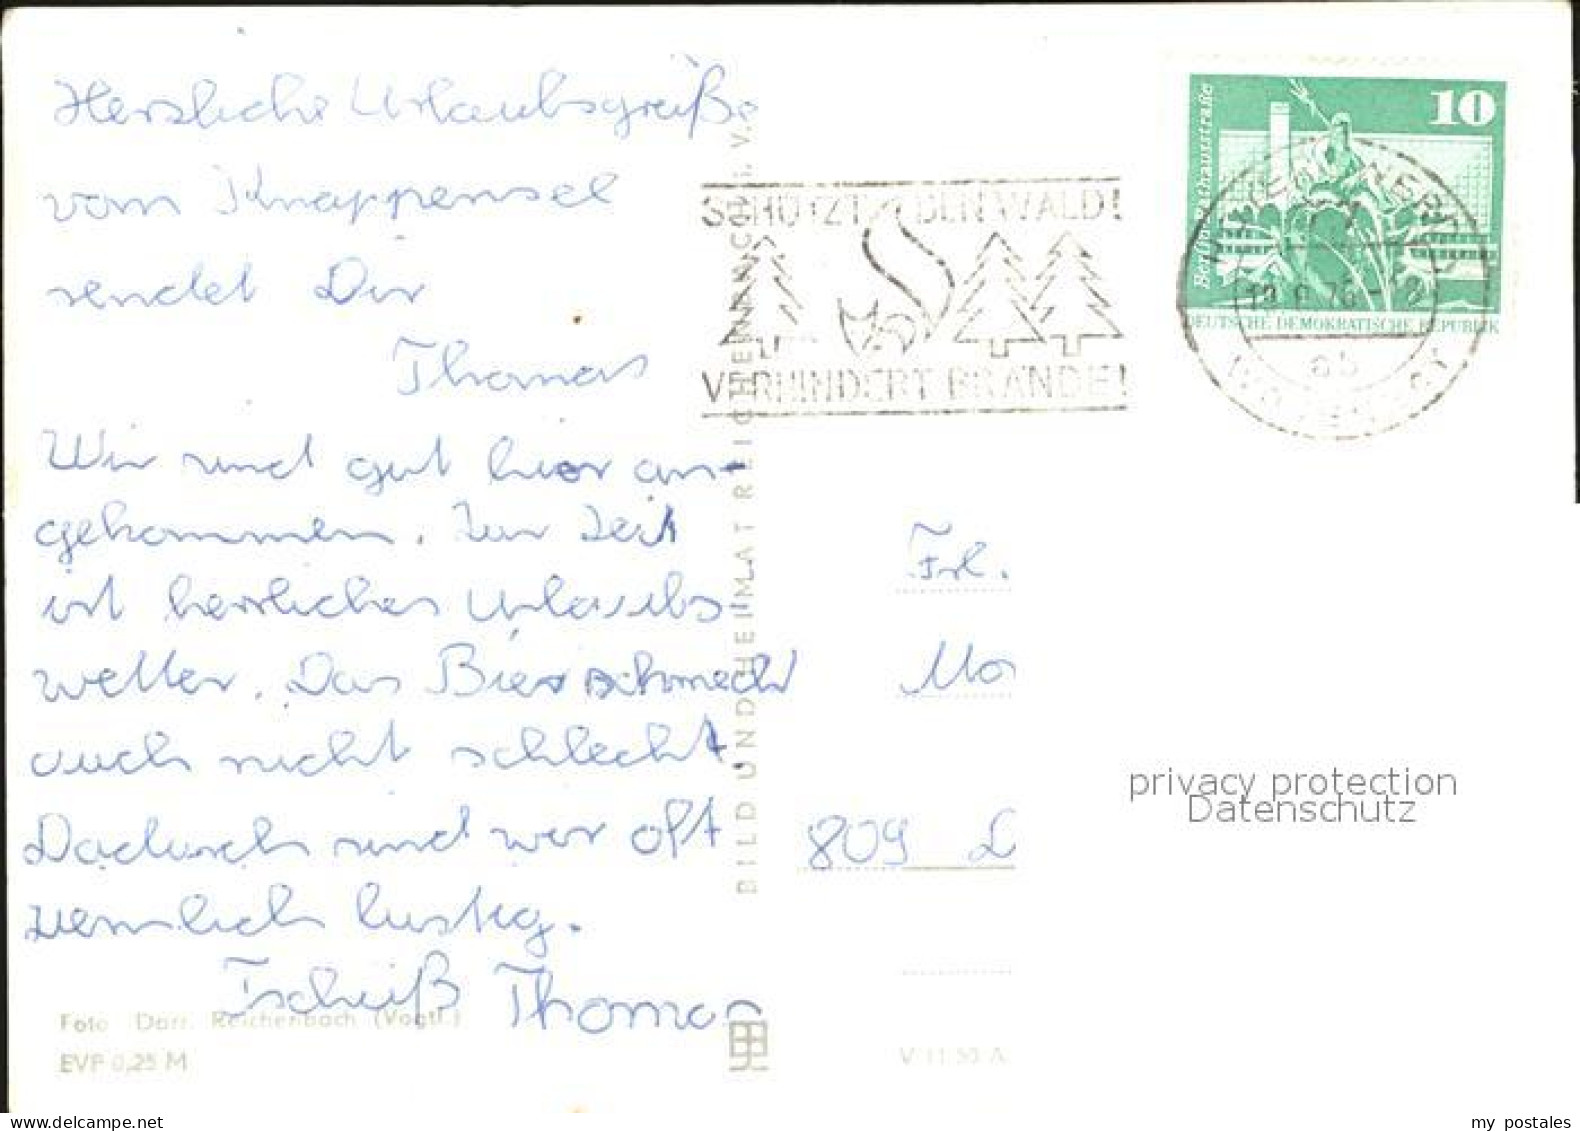 Herzliche Urlaubsgrüße
vom Knappensee
sendet Dir
Thomas
Wir sind gut hier an-
gekommen. Zur Zeit
ist herrliches Urlaubs-
wetter. Das Bier schmeckt
auch nicht schlecht.
Dadurch sind wir oft
ziemlich lustig.
Tschüß Thomas
Foto: Darr, Reichenbach (Vogtl.)
EVP 0,25 M
BILD UND HEIMAT REICHENBACH I. V.
V 11 50 A
SCHÜTZT DEN WALD!
VERHINDERT BRÄNDE!
10
Berlin-Rathausstraße
DEUTSCHE DEMOKRATISCHE REPUBLIK
HOYERSWERDA 1
ab
Frl.
Mo
809 L
privacy protection
Datenschutz
my postales